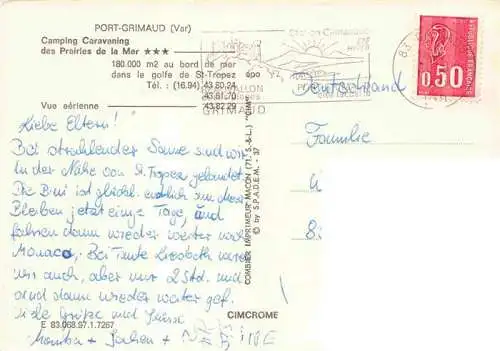 PORT-GRIMAUD (Var)
Camping Caravaning
des Prairies de la Mer ★★★
180.000 m2 au bord de mer
dans le golfe de St-Tropez
Tél. : (16.94) 43.80.24
43.61.70
43.82.29
Vue aérienne
GRIMAUD
RÉPUBLIQUE FRANÇAISE
0,50
Deutschland
Familie
Liebe Eltern!
Bei strahlender Sonne sind wir
in der Nähe von St. Tropez gelandet.
Die Bini ist glückl. endlich am Meer
Bleiben jetzt einige Tage, und
fahren dann wieder weiter nach
Monaco. Bei Tante Liesbeth waren
wir auch, aber nur 2 Std. und
sind dann wieder weiter gef.
Viele Grüsse und Küsse
Monika + Jochen +
COMBIER IMPRIMEUR MACON (71, S.-&-L.) "CIM"
© by S.P.A.D.E.M. - 37
CIMCROME
E 83.068.97.1.7267